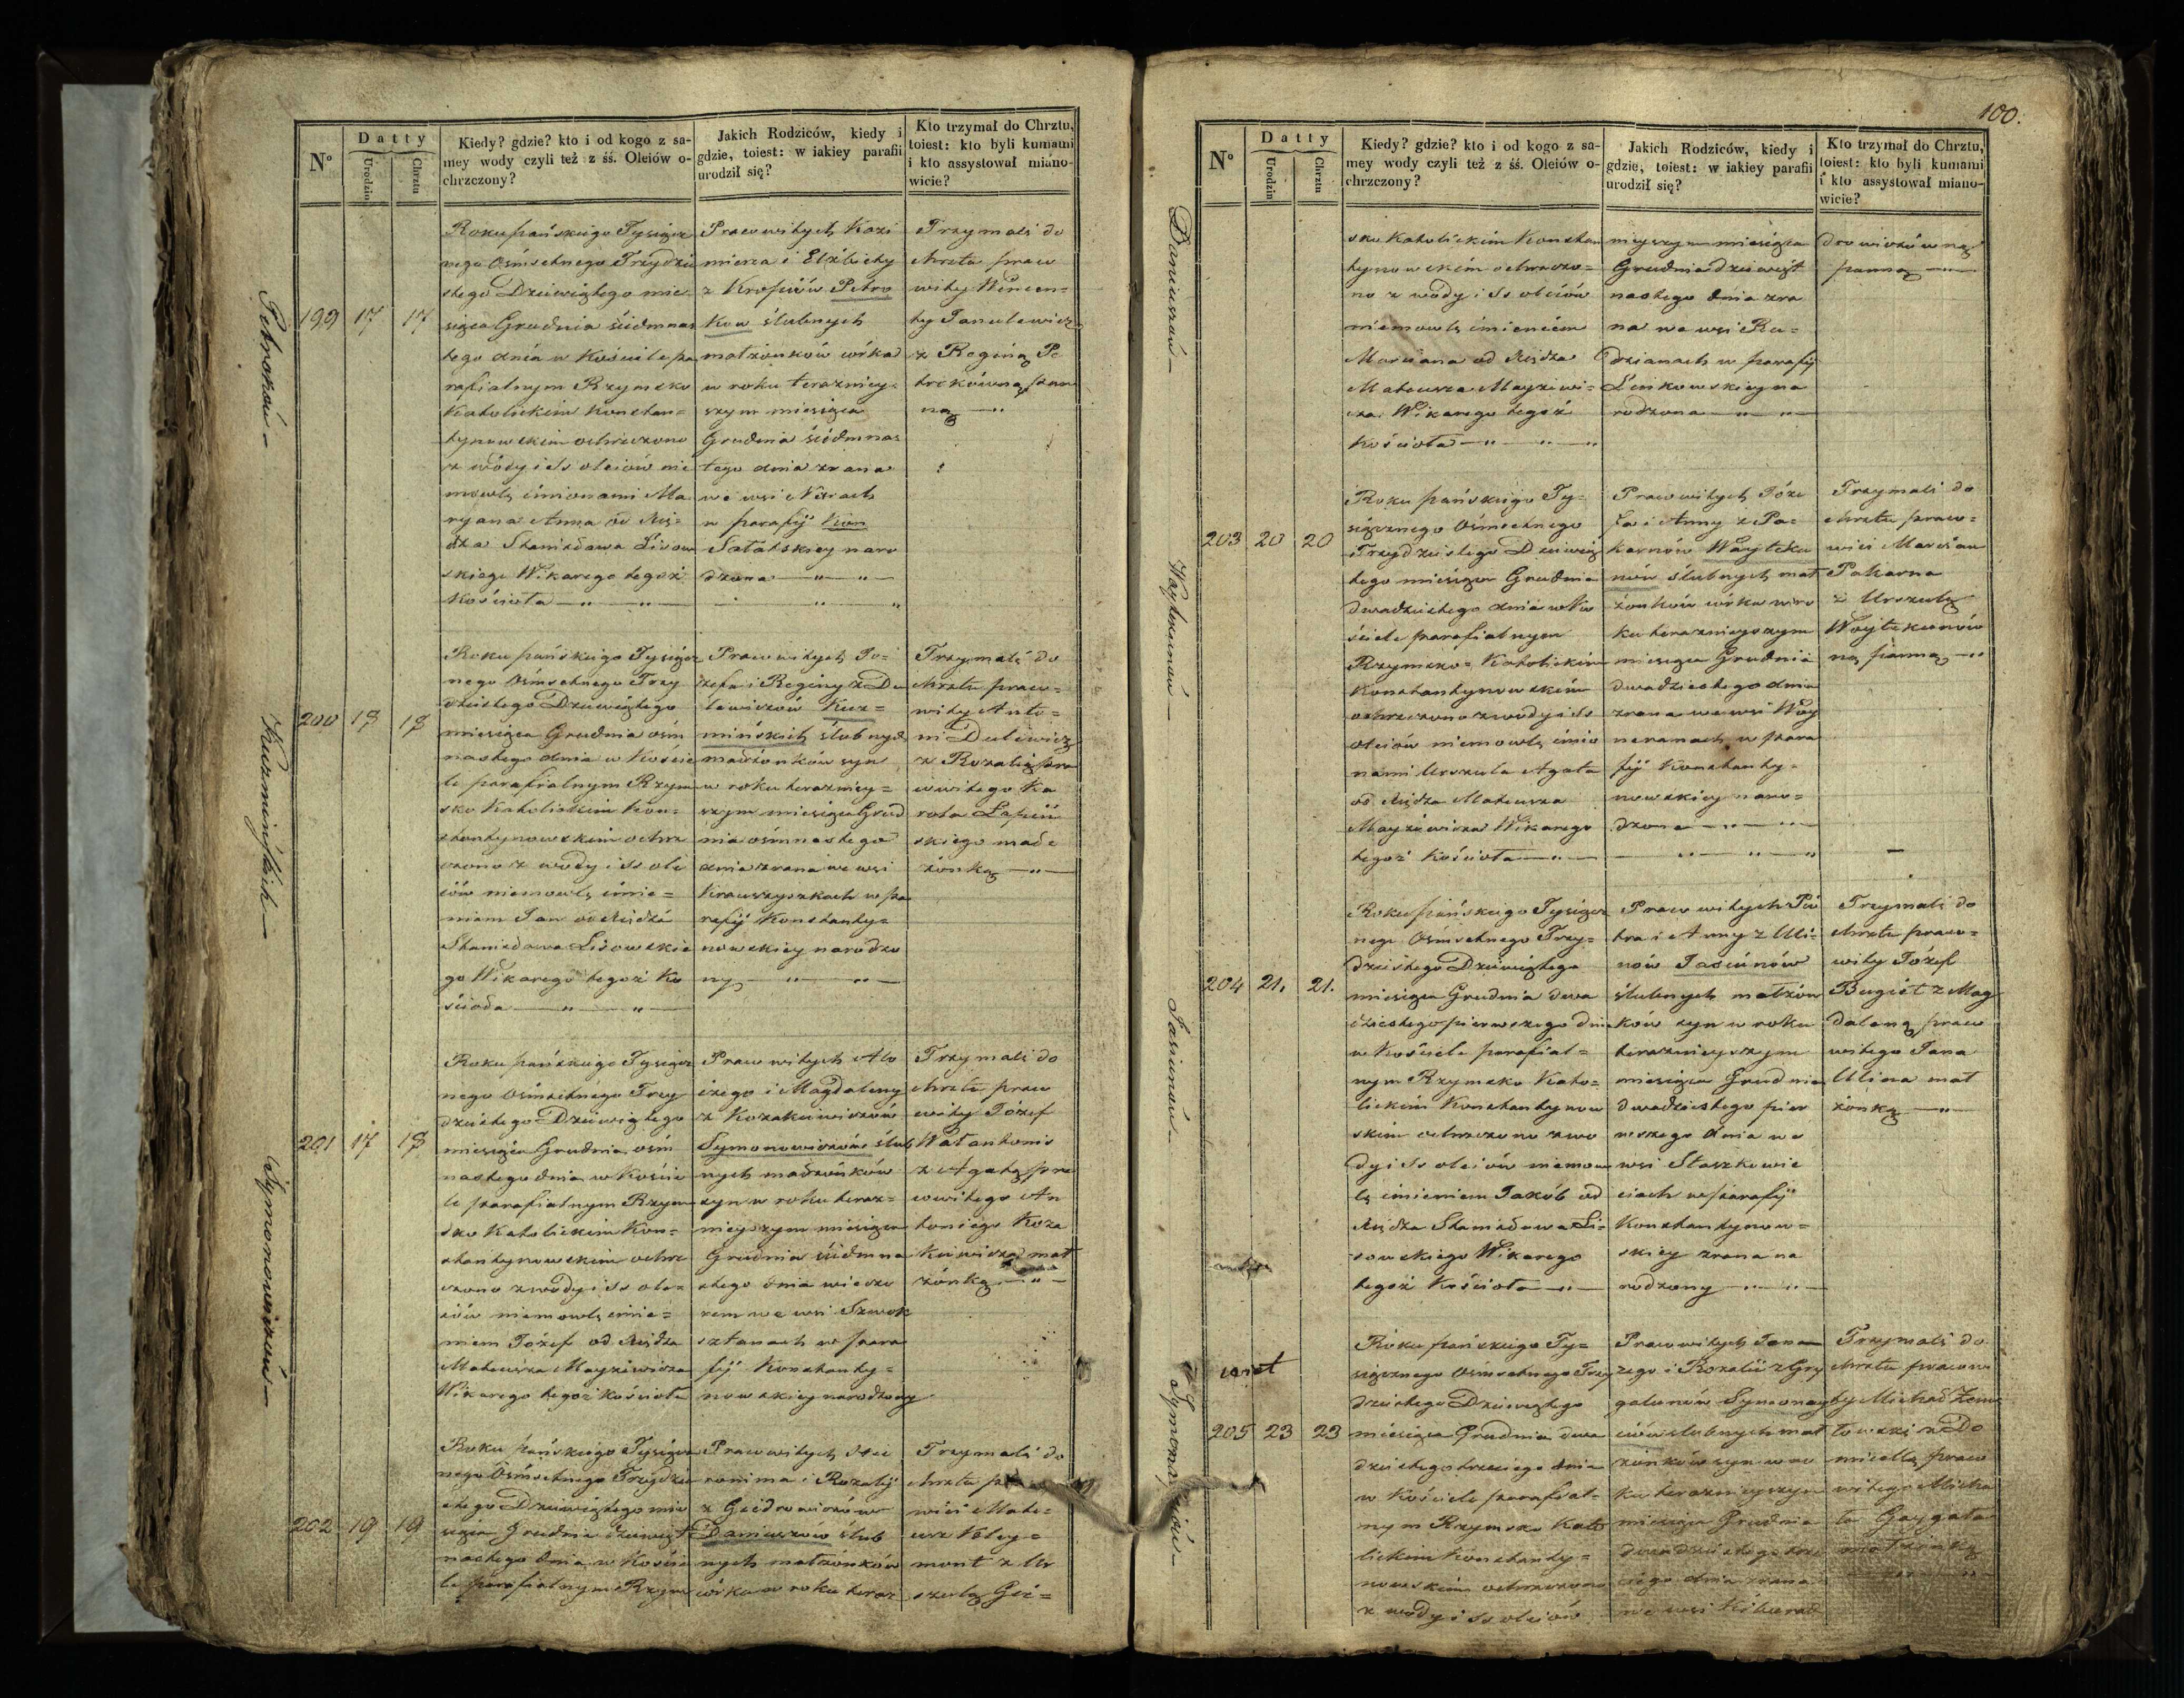 100.
N°
Datty
Urodzin
Chrztu
Kiedy? gdzie? kto i od kogo z sa-
mey wody czyli też z śś. Oleiów o-
chrzczony?
Jakich Rodziców, kiedy i
gdzie, toiest: w iakiey parafii
urodził się?
Kto trzymał do Chrztu,
toiest: kto byli kumami
i kto assystował miano-
wicie?
199 17 17
Roku pańskiego Tysiącz
nego Ośmsetnego Trzydzie
stego Dziewiątego mie
siąca Grudnia siedmnas
tego dnia w Kościele pa
rafialnym Rzymsko
Katolickim Konstan=
tynowskim ochrzczono
z wody i SS oleiów nie
mowlę imionami Ma
ryana Anna od Xię=
dza Stanisława Lisow
skiego Wikarego tegoż
Kościoła
Prawowitych Kazi
mierza i Elżbiety
z Kropiów Petro
kow ślubnych
małżonków córka
w roku teraźniey=
szym miesiąca
Grudnia siedmnas
tego dnia zrana
we wsi
w parafij Kon
naro
dzona
Trzymali do
chrztu praw
wity Wincen=
ty Janulewicz
z Reginą Pe
trokówną pan
ną
200 18 18
Roku pańskiego Tysiącz
nego Ośmsetnego Trzy
dziestego Dziewiątego
miesiąca Grudnia ośm
nastego dnia w Koście
le parafialnym Rzym
sko Katolickim Kon=
stantynowskim ochrz
czono z wody i SS ole
iów niemowlę imie=
niem Jan od Xiędza
Stanisława Lisowskie
go Wikarego tegoż Ko
ścioła
Prawowitych Jo=
zefa i Reginy z Du
lewiczów Kuz=
mińskich ślubnych
małżonków syn
w roku teraźniey=
szym miesiąca Grud
nia ośmnastego
dnia zrana we wsi
Krawszyszkach w pa
rafij Konstanty=
nowskiey narodzo
ny
Trzymali do
chrztu praw=
wity Anto=
ni Dulewicz
z Rozalią pra
wowitego Ka
rola Lapiń
skiego małż
żonką
201 17 18
Roku pańskiego Tysiącz
nego Ośmsetnego Trzy
dziestego Dziewiątego
miesiąca Grudnia ośm
nastego dnia w Koście
le parafialnym Rzym
sko Katolickim Kon=
stantynowskim ochrz
czono z wody i SS ole=
iów niemowlę imie=
niem Józef od Xiędza
Mateusza Mayziewicza
Wikarego tegoż kościoła
Prawowitych Alo
izego i Magdaleny
z Kozakiewiczów
Symonowiczów ślub
nych małżonków
syn w roku teraz=
nieyszym miesiąca
Grudnia siedmna
stego dnia wieczo
rem we wsi Szwok
sztanach w para
fij Konstanty=
nowskiey narodzony
Trzymali do
chrztu praw
wity Józef
Watantonis
z Agatą pra
wowitego An
toniego Koza
kiewicza mał
żonką
202 19 19
Roku pańskiego Tysiącz
nego Ośmsetnego Trzydzie
stego Dziewiątego mie
siąca Grudnia dziewięt
nastego dnia w Koście
le parafialnym Rzym
Prawowitych Hie
ronima i Rozalij
z Giedrowiczów
Daniuszów ślub
nych małżonków
córka w roku teraz
Trzymali do
chrztu
wici Mate=
usz Woley=
mont z Ur
szulą Gie=
Petroków
Kuzmińskich
Symonowiczów
N°
Datty
Urodzin
Chrztu
Kiedy? gdzie? kto i od kogo z sa-
mey wody czyli też z śś. Oleiów o-
chrzczony?
Jakich Rodziców, kiedy i
gdzie, toiest: w iakiey parafii
urodził się?
Kto trzymał do Chrztu,
toiest: kto byli kumami
i kto assystował miano-
wicie?
Daniuszów
sko Katolickim Konstan
tynowskim ochrzczo=
no z wody i SS oleiów
niemowlę imieniem
Maryana od Xiędza
Mateusza Mayziewi=
cza Wikarego tegoż
Kościoła
nieyszym miesiąca
Grudnia dziewięt
nastego dnia zra
na we wsi Ru=
dzianach w parafij
Łinkowskiey na
rodzona
drowiczówną
panną
Woytekunów
203 20 20
Roku pańskiego Ty=
siącznego Ośmsetnego
Trzydziestego Dziewią
tego miesiąca Grudnia
dwudziestego dnia w Ko
ściele parafialnym
Rzymsko=Katolickim
Konstantynowskim
ochrzczono z wody i SS
oleiów niemowlę imio
nami Urszula Agata
od Xiędza Mateusza
Mayziewicza Wikarego
tegoż Kościoła
Prawowitych Józe
fa i Anny z Po=
karnów Woyteku
nów ślubnych mał
żonków córka w ro
ku teraznieyszym
miesiąca Grudnia
dwudziestego dnia
zrana we wsi Woy
neranach w para
fij Konstanty=
nowskiey naro=
dzona
Trzymali do
chrztu praw=
wici Marcian
Pokarna
z Urszulą
Woytekunów
ną panną
Jasiunów
204 21. 21.
Roku pańskiego Tysiącz
nego Ośmsetnego Trzy=
dziestego Dziewiątego
miesiąca Grudnia dwu
dziestego pierwszego dnia
w Kościele parafial=
nym Rzymsko Kato=
lickim Konstantynow
skim ochrzczono z wo
dy i SS oleiów niemow
lę imieniem Jakób od
Xiędza Stanisława Li=
sowskiego Wikarego
tegoż Kościoła
Prawowitych Pio
tra i Anny z Uli=
nów Jasiunów
ślubnych małżon
ków syn w roku
teraznieyszym
miesiąca Grudnia
dwudziestego pier
wszego dnia we
wsi Staszkowie
ciach w parafij
Konstantynow=
skiey zrana na
rodzony
Trzymali do
chrztu praw=
wity Józef
Bugiet z Mag
daleną praw
witego Jana
Ulina mał
żonką
205 23 23
Roku pańskiego Ty=
siącznego Ośmsetnego Trzy
dziestego Dziewiątego
miesiąca Grudnia dwu
dziestego trzeciego dnia
w Kościele parafial=
nym Rzymsko Kato
lickim Konstanty=
nowskim ochrzczono
z wody i SS oleiów
Prawowitych
i Rozalii z Gry
galunów
ciów ślubnych mał
żonków syn w ro
ku teraznieyszym
miesiąca Grudnia
dwudziestego trze
ciego dnia zrana
we wsi
Trzymali do
chrztu prawowi
ty Michał
z Do
micellą praw
witego Micha
ła Gaygała
małżonką